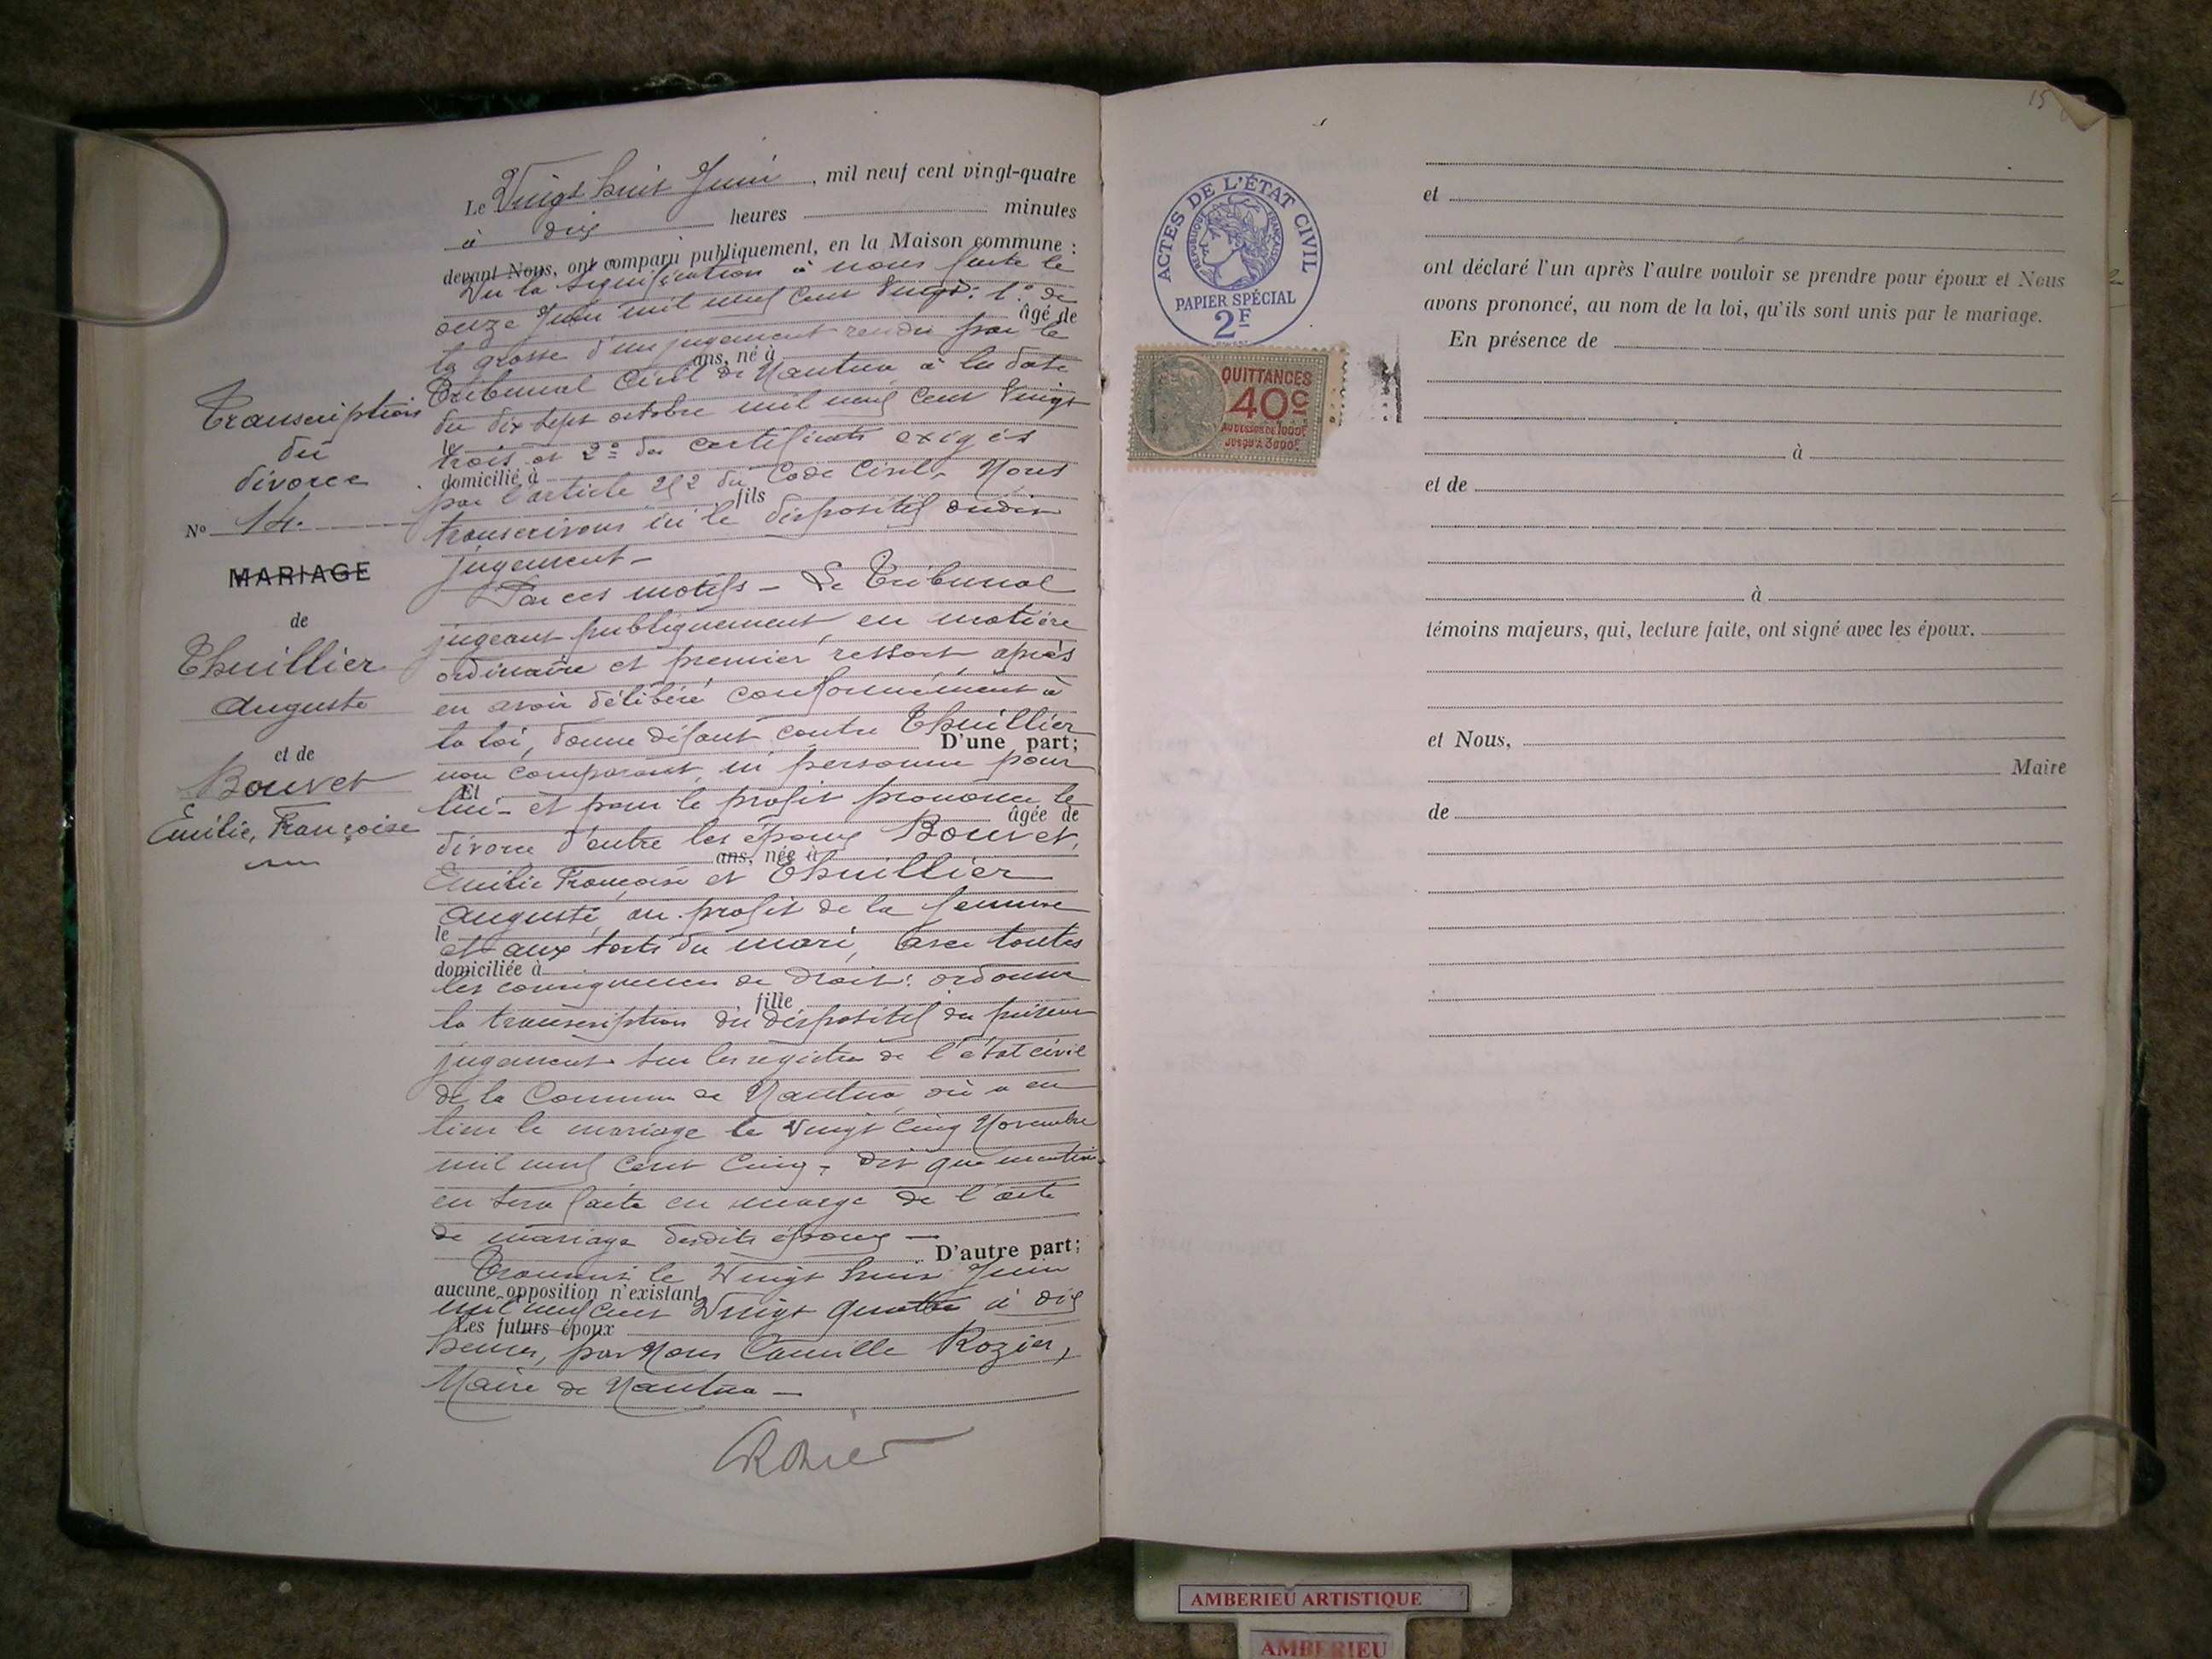 Transcription
du
divorce
No 14.
MARIAGE
de
Thuillier
Auguste
et de
Bouvet
Emilie, Françoise
Le Vingt huit Juin, mil neuf cent vingt-quatre
à dix heures minutes
devant Nous, ont comparu publiquement, en la Maison commune :
Vu la signification à nous faite le
onze Juin mil neuf cent Vingt : 1° de
âgé de
la grosse d'un jugement rendu par le
ans, né à
Tribunal Civil de Nantua à la date
du dix sept octobre mil neuf cent Vingt
le
trois et 2° des certificats exigés
domicilié à
par l'article 252 du Code Civil, Nous
fils
transcrivons ici le dispositif dudit
jugement -
Par ces motifs - Le Tribunal
jugeant publiquement, en matière
ordinaire et premier ressort après
en avoir délibéré conformément à
la loi, donne défaut contre Thuillier
D'une part;
non comparant, ni personne pour
Et
lui - et pour le profit prononce le
âgée de
divorce d'entre les époux Bouvet,
ans, née à
Emilie Françoise et Thuillier
Auguste, au profit de la femme
le
et aux torts du mari, avec toutes
domiciliée à
les conséquences de droit : ordonne
fille
la transcription du dispositif du présent
jugement sur les registres de l'état civil
de la Commune de Nantua, où a eu
lieu le mariage le Vingt cinq Novembre
mil neuf cent cinq, dit que mention
en sera faite en marge de l'acte
de mariage desdits époux —
D'autre part;
Transcrit le Vingt huit Juin
aucune opposition n'existant
mil neuf cent Vingt quatre à dix
Les futurs époux
heures, par Nous Camille Rozier,
Maire de Nantua —
Rozier
15
ACTES DE L'ÉTAT CIVIL
RÉPUBLIQUE FRANÇAISE
PAPIER SPÉCIAL
2F
QUITTANCES
40c
AU DESSUS DE 1000F
JUSQU'À 3000F
et
ont déclaré l'un après l'autre vouloir se prendre pour époux et Nous
avons prononcé, au nom de la loi, qu'ils sont unis par le mariage.
En présence de
à
et de
à
témoins majeurs, qui, lecture faite, ont signé avec les époux.
et Nous,
Maire
de
AMBERIEU ARTISTIQUE
AMBERIEU